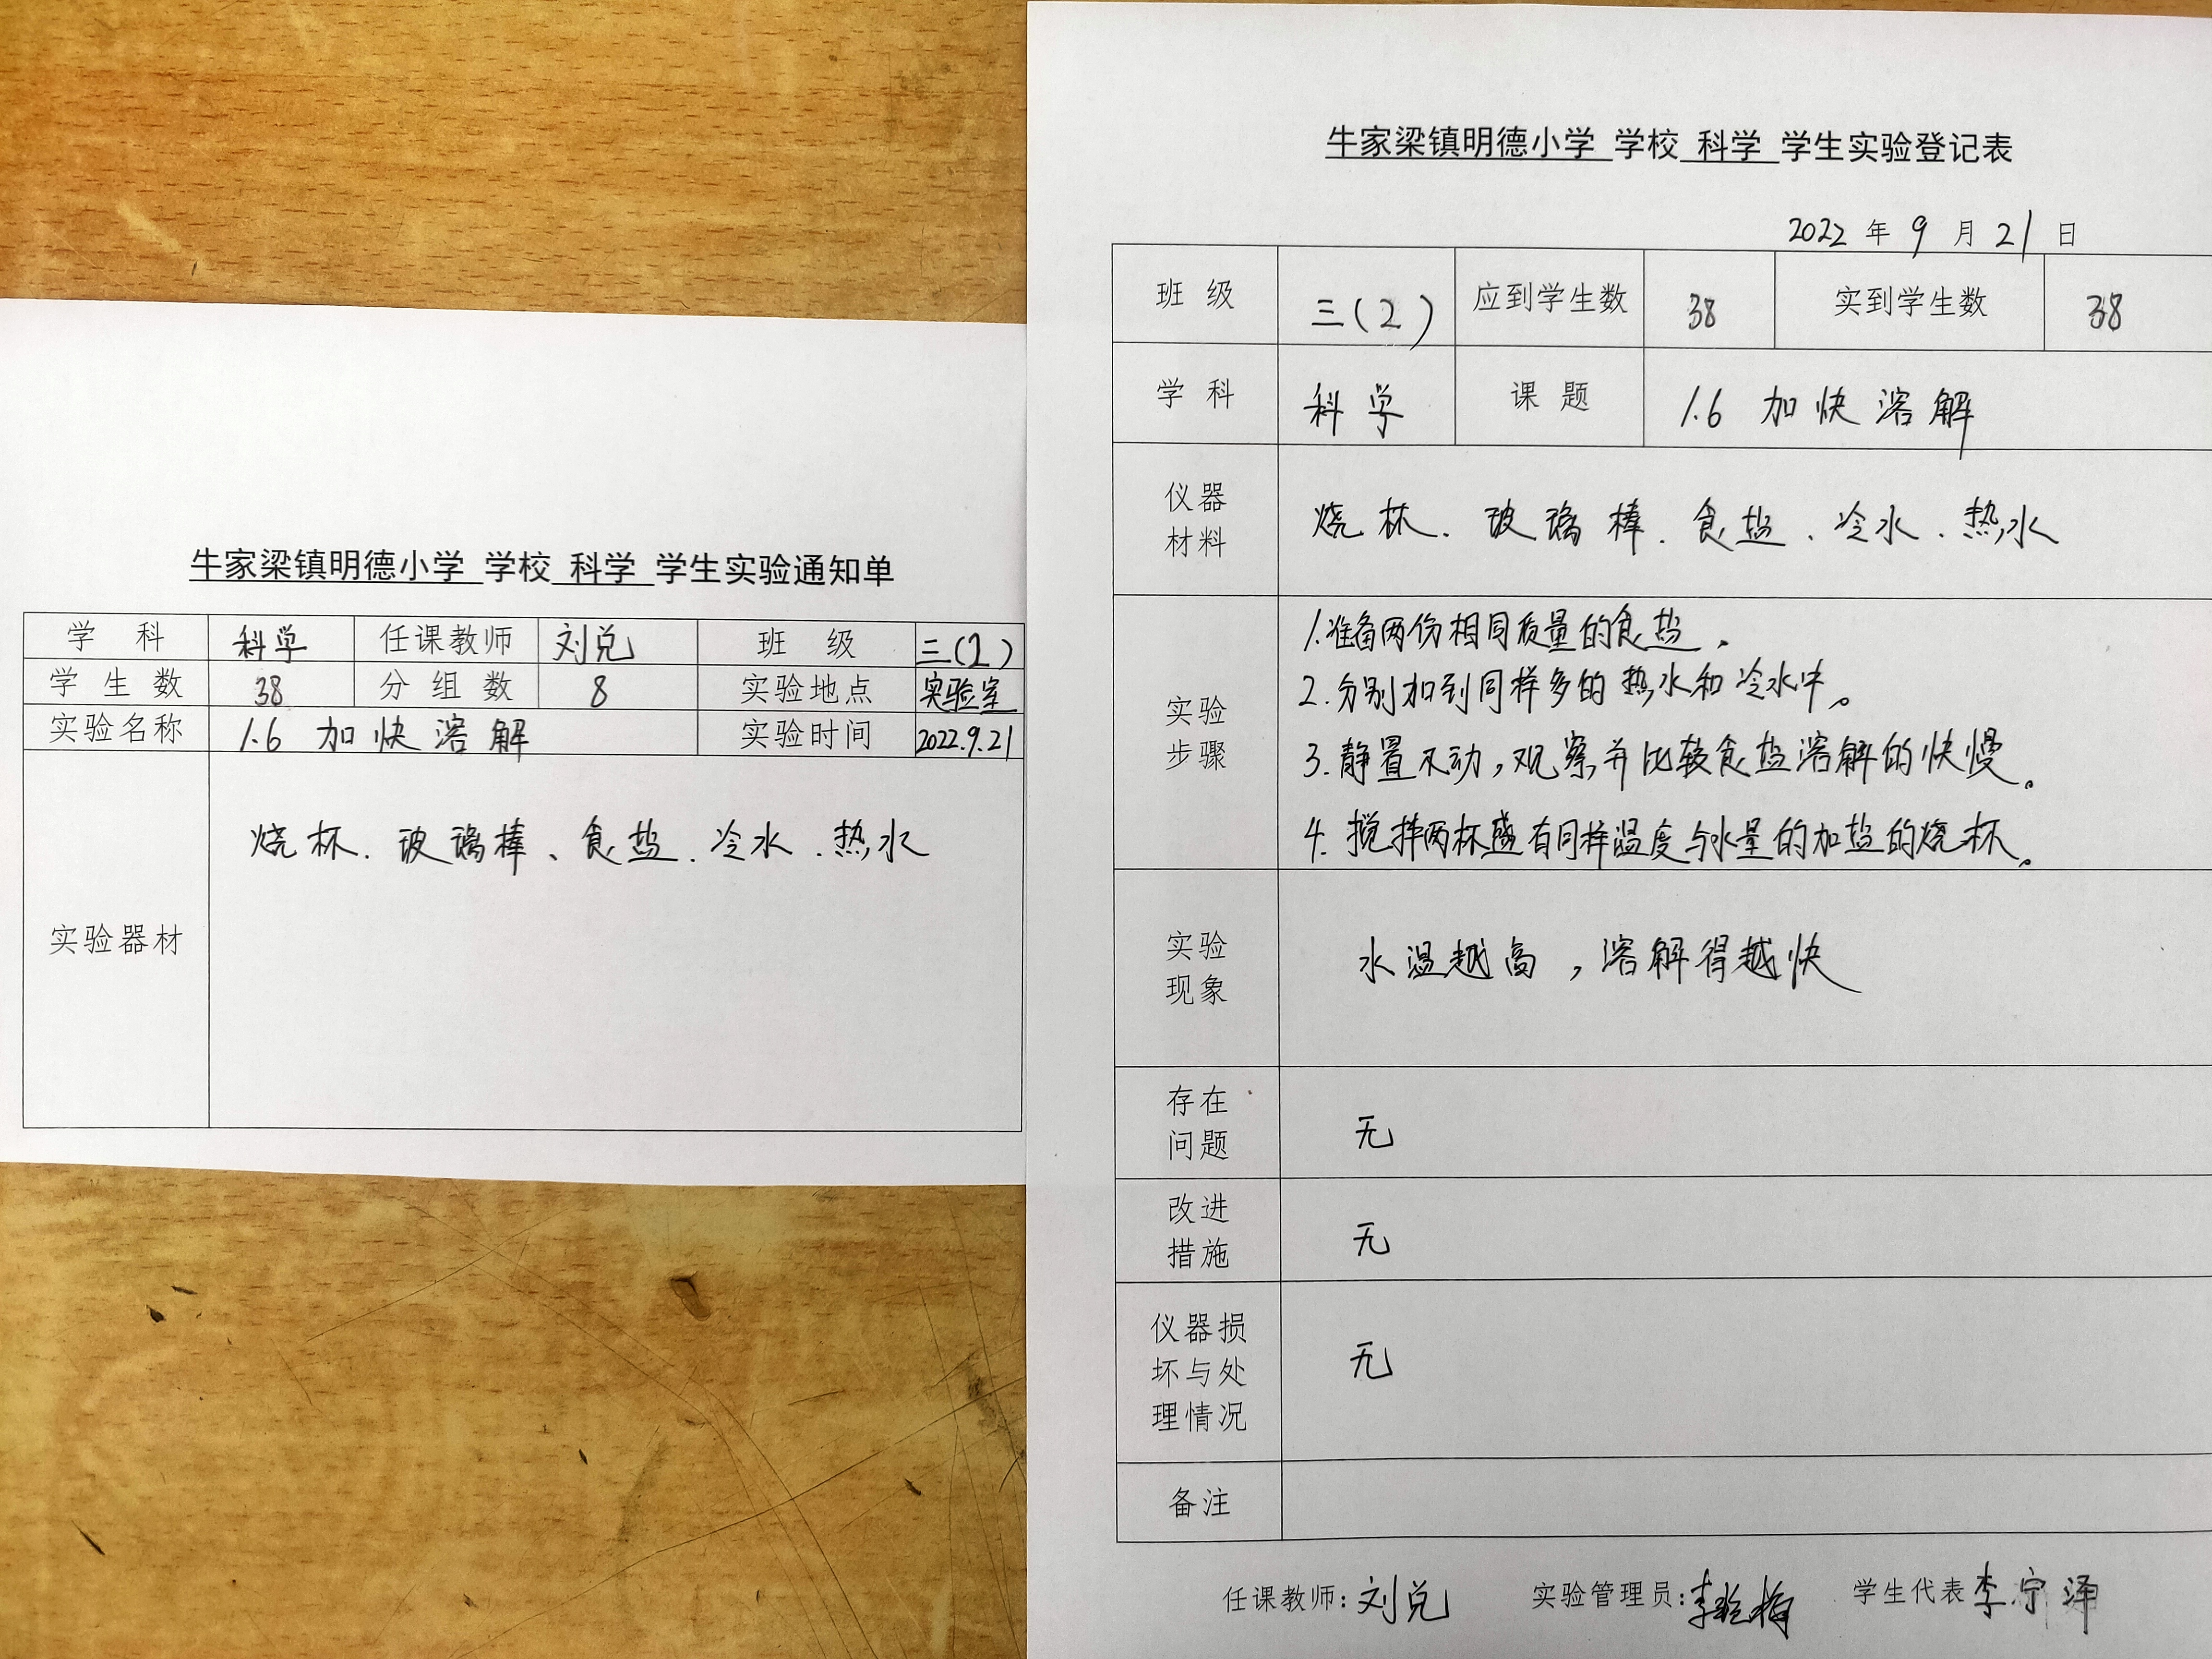 牛家梁镇明德小学 学校 科学 学生实验通知单
学 科 科学 任课教师 刘兑 班 级 三(2)
学 生 数 38 分 组 数 8 实验地点 实验室
实验名称 1.6 加快溶解 实验时间 2022.9.21
实验器材 烧杯、玻璃棒、食盐、冷水、热水
牛家梁镇明德小学 学校 科学 学生实验登记表
2022 年 9 月 21 日
班 级 三(2) 应到学生数 38 实到学生数 38
学 科 科学 课 题 1.6 加快溶解
仪器
材料
烧杯、玻璃棒、食盐、冷水、热水
实验
步骤
1.准备两份相同质量的食盐。
2.分别加到同样多的热水和冷水中。
3.静置不动,观察并比较食盐溶解的快慢。
4.搅拌两杯盛有同样温度与水量的加盐的烧杯。
实验
现象
水温越高,溶解得越快
存在
问题
无
改进
措施
无
仪器损
坏与处
理情况
无
备注
任课教师:刘兑 实验管理员:李 梅 学生代表 李宁泽